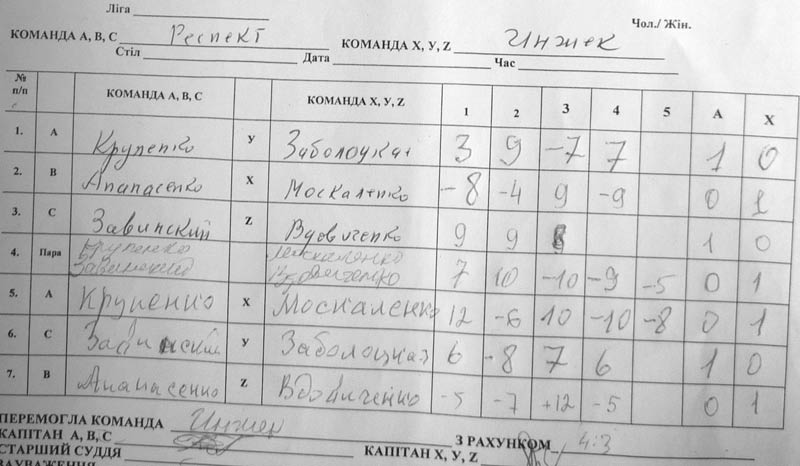 Ліга
Чол./ Жін.
КОМАНДА А, В, С Респект КОМАНДА Х, У, Z Инжек
Стіл Дата Час
№ п/п КОМАНДА А, В, С КОМАНДА Х, У, Z 1 2 3 4 5 А Х
1. А Крупенко У Заболоцкая 3 9 -7 7 1 0
2. В Апапасенко Х Москаленко -8 -4 9 -9 0 1
3. С Завинский Z Вдовиченко 9 9 8 1 0
4. Пара Крупенко Москаленко
Завинский Вдовиченко 7 10 -10 -9 -5 0 1
5. А Крупенко Х Москаленко 12 -6 10 -10 -8 0 1
6. С Завинский У Заболоцкая 6 -8 7 6 1 0
7. В Апапасенко Z Вдовиченко -5 -7 +12 -5 0 1
ПЕРЕМОГЛА КОМАНДА З РАХУНКОМ 4:3
КАПІТАН А, В, С КАПІТАН Х, У, Z
СТАРШИЙ СУДДЯ
ЗАУВАЖЕННЯ